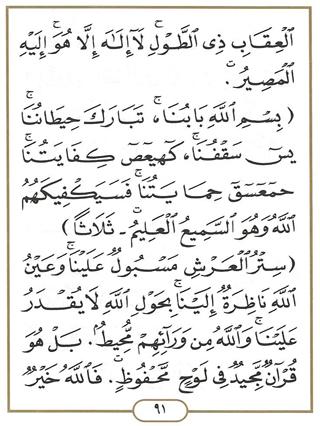 ٱلْعِقَابِ ذِى ٱلطَّوْلِ لَآ إِلَـٰهَ إِلَّا هُوَ إِلَيْهِ
ٱلْمَصِيرُ .
( بِسْمِ ٱللَّهِ بَابُنَا ، تَبَارَكَ حِيطَانُنَا
يسٓ سَقْفُنَا ، كٓهيعٓصٓ كِفَايَتُنَا
حمٓعٓسٓقٓ حِمَايَتُنَا فَسَيَكْفِيكَهُمُ
ٱللَّهُ وَهُوَ ٱلسَّمِيعُ ٱلْعَلِيمُ - ثَلَاثًا )
( سِتْرُ ٱلْعَرْشِ مَسْبُولٌ عَلَيْنَا وَعَيْنُ
ٱللَّهِ نَاظِرَةٌ إِلَيْنَا بِحَوْلِ ٱللَّهِ لَا يُقْدَرُ
عَلَيْنَا وَٱللَّهُ مِن وَرَآئِهِم مُّحِيطٌ . بَلْ هُوَ
قُرْآنٌ مَّجِيدٌ فِى لَوْحٍ مَّحْفُوظٍ . فَٱللَّهُ خَيْرٌ
٩١